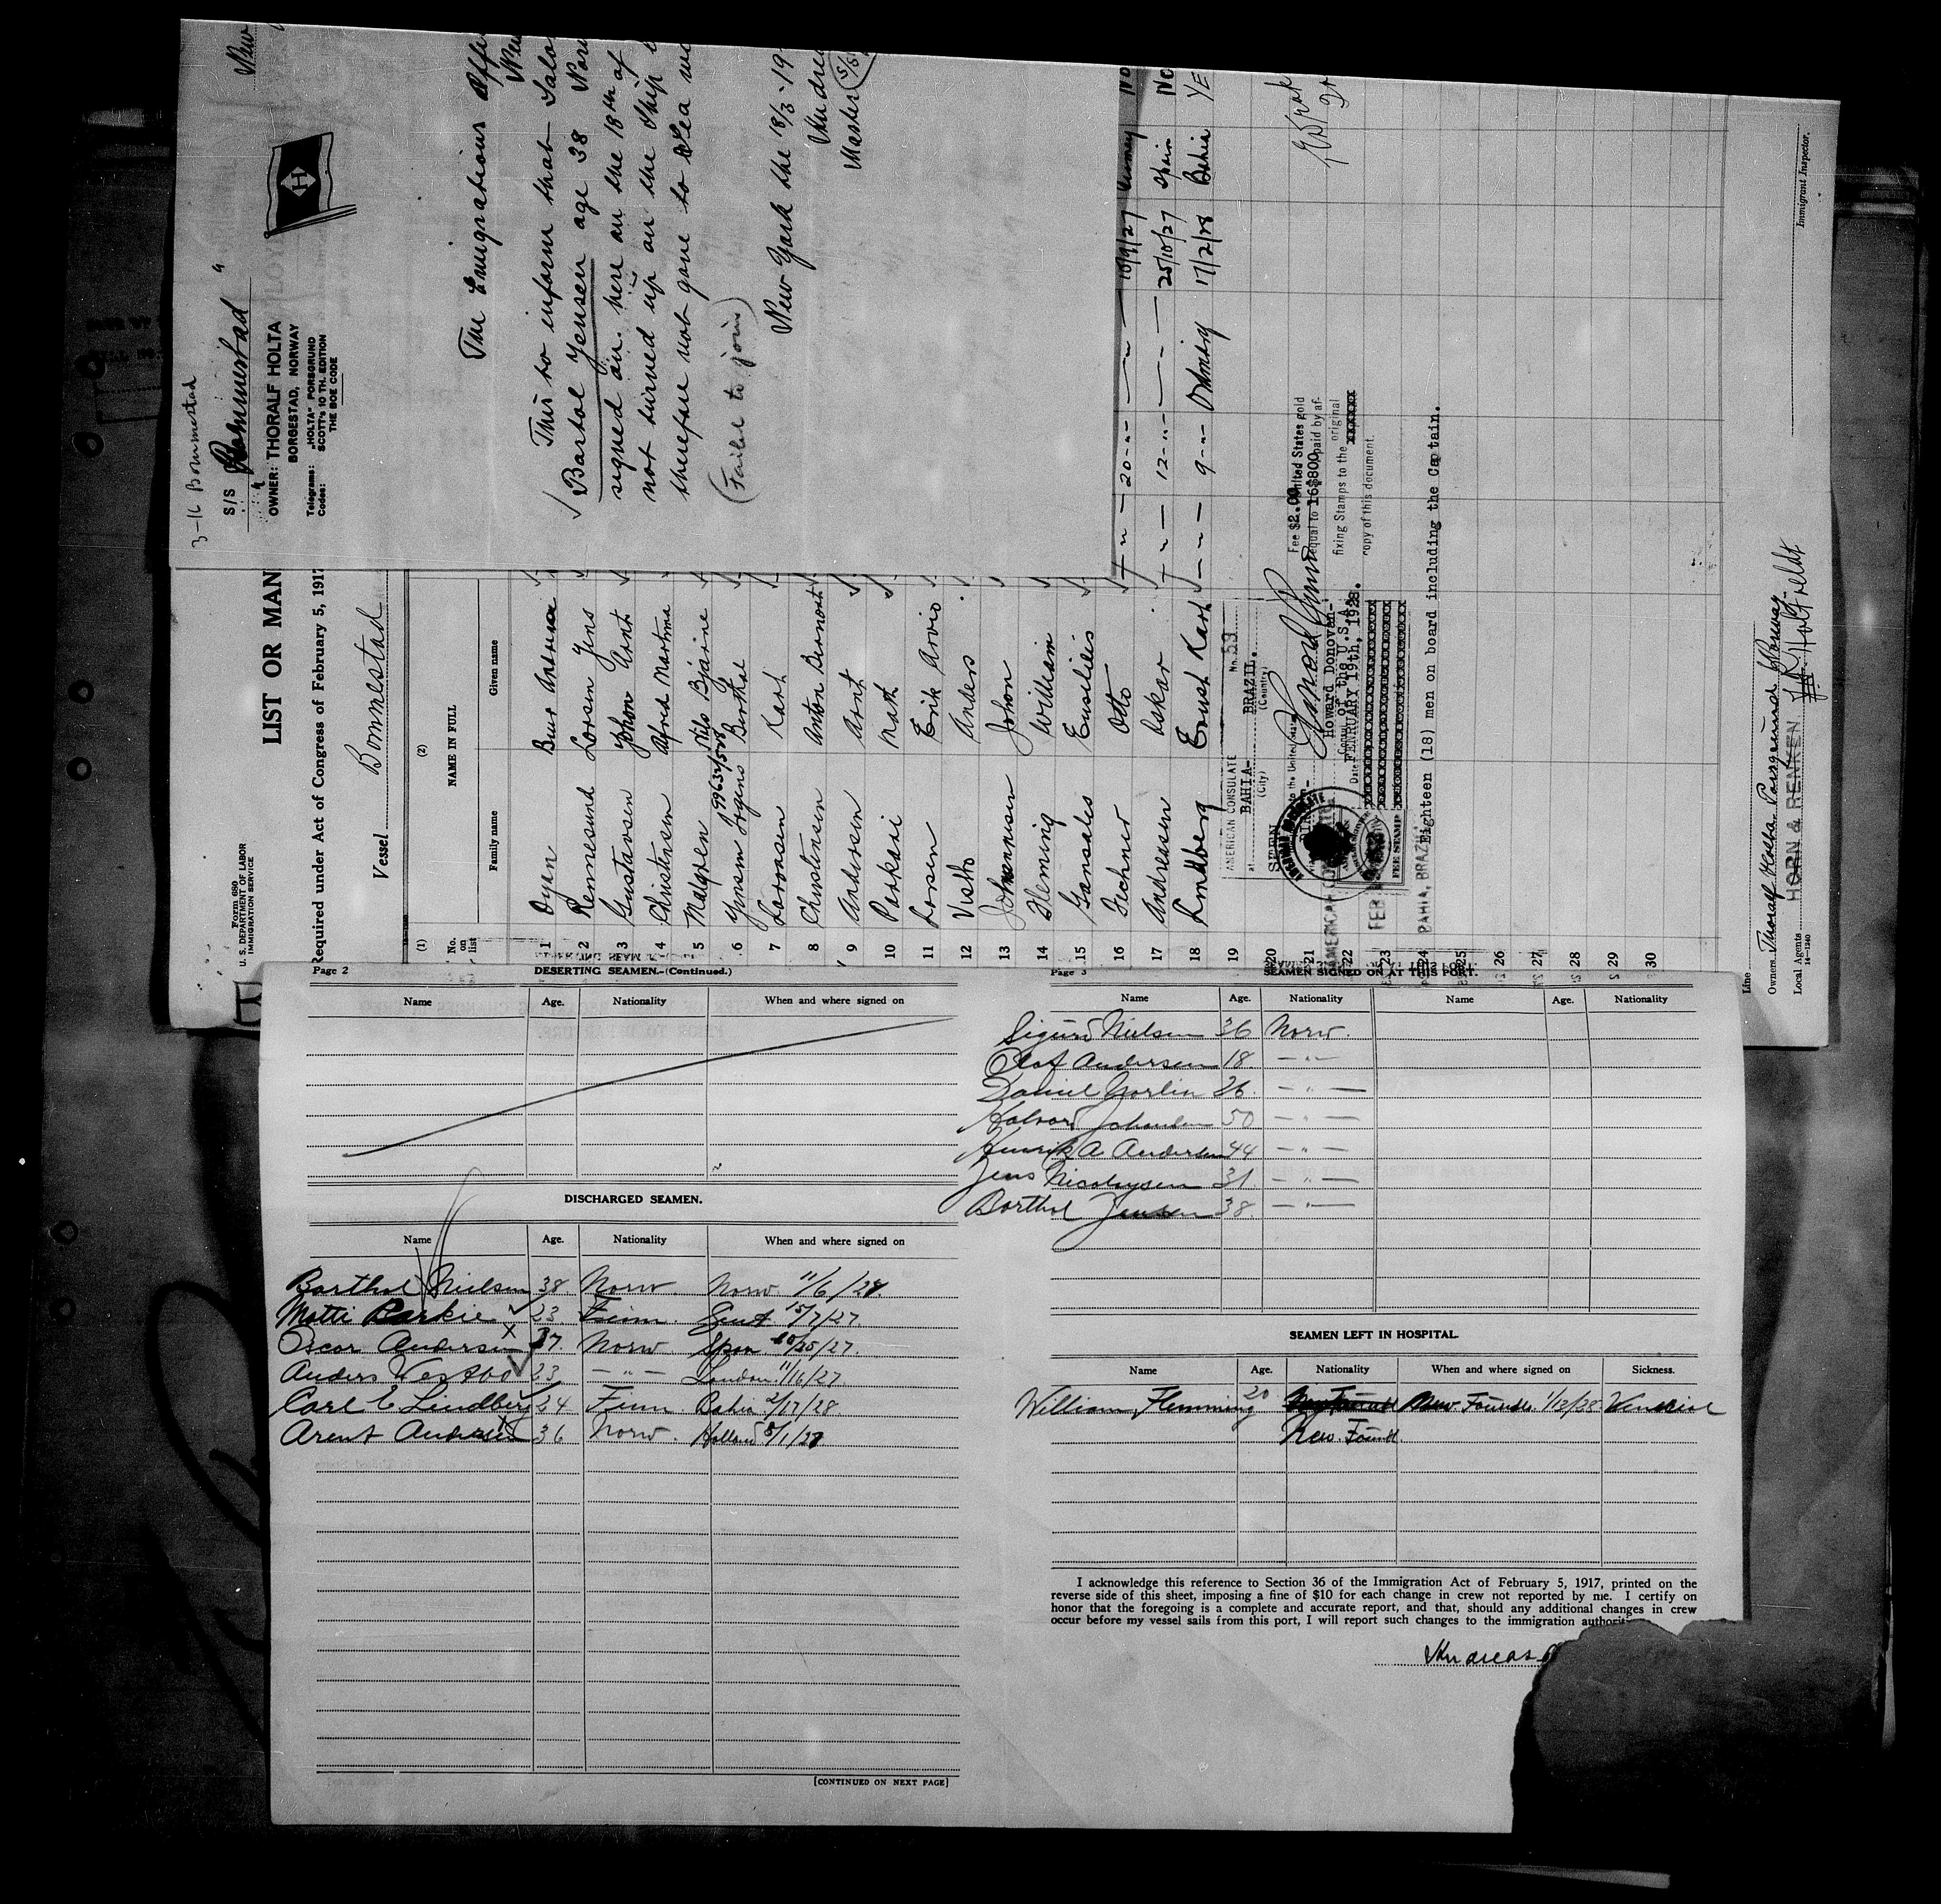 3-16 Bommestad
S/S "Bommestad"
OWNER: THORALF HOLTA
BORGESTAD, NORWAY
Telegrams: "HOLTA" PORSGRUND
Codes: SCOTT'S 10 TH. EDITION
THE BOE CODE
H
New
The Emigrations Offi
New
This to inform that
Bartol Jensen age 38 Norw
signed on here on the 18th of
not turned up on the Ship
therefore not gone to Sea
(Failed to join)
New York the 18/3-19
Andrea
Master
Form 680
U. S. DEPARTMENT OF LABOR
IMMIGRATION SERVICE
LIST OR MAN
Required under Act of Congress of February 5, 1917
Vessel Bommestad
(1) (2)
No. on list NAME IN FULL
Family name Given name
1
2 Rennesund Lorsen Jens
3 Gustavsen Johan Arnt
4 Christensen Alfred Martina
5 Nils Bjarne
6 Jensen Jørgens Berthal
7 Karl
8 Christensen Anton Bernort
9 Andersen Arnt
10 Parkari Matt
11 Larsen Erik Arvid
12 Vistto Anders
13 Johannessen Johan
14 Fleming William
15 Gansalis
16 Fechner Otto 20 18/9/27 NO
17 Andreasen Askar 12 25/10/27 Spain NO
18 Lindberg Ernst Karl 9 Ordinary 17/2/28 Bahia YE
19
20
21
22
23
24
25
26
27
28
29
30
AMERICAN CONSULATE No. 53
at BAHIA- BRAZIL.
(City) (Country)
Howard Donovan-
Consul of the U.S.A.
Date FENRUARY 19th, 1928.
FEE STAMP
AMERICAN CON
FEB
BAHIA, BRAZIL
Fee $2.00 United States gold
equal to 16$800, paid by af-
fixing Stamps to the original
copy of this document.
Eighteen (18) men on board including the Captain.
Line
Owners Thoralf Holta Porsgrund Norway
Local Agents HORN & RENKEN
14—1240
Immigrant Inspector.
Page 2
DESERTING SEAMEN.—(Continued.)
Name Age. Nationality When and where signed on
DISCHARGED SEAMEN.
Name Age. Nationality When and where signed on
Barthol Nielsen 38 Norw. Norw 11/6/28.
Matti Parkie 23 Finn. Gent 15/7/27.
Oscar Andersen 27. Norw Span 10/25/27.
Anders Vestbo 23 — " — London 11/16/27.
Carl E Lindberg 24 Finn Bahia 2/17/28
Arent Andersen 36 Norw. Holland 8/1/27
[CONTINUED ON NEXT PAGE]
Page 3
SEAMEN SIGNED ON AT THIS PORT.
Name Age. Nationality Name Age. Nationality
Sigurd Nielsen 36 Norw.
Olaf Andersen 18. — " —
Daniel Norlin 26. — " —
Halvard Johansen 50 — " —
Henrik A Andersen 44 — " —
Jens Nicolaysen 31. — " —
Barthol Jensen 38. — " —
SEAMEN LEFT IN HOSPITAL.
Name Age. Nationality When and where signed on Sickness.
William Flemming 20 New Foundl. 1/12/28 Venerial
New. Found.
I acknowledge this reference to Section 36 of the Immigration Act of February 5, 1917, printed on the
reverse side of this sheet, imposing a fine of $10 for each change in crew not reported by me. I certify on
honor that the foregoing is a complete and accurate report, and that, should any additional changes in crew
occur before my vessel sails from this port, I will report such changes to the immigration authorit
Andreas